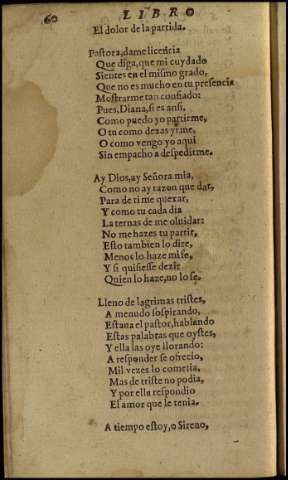 60 LIBRO
El dolor de la partida.
Pastora, dame licencia
Que diga, que mi cuydado
Sientes en el mismo grado,
Que no es mucho en tu presencia
Mostrarme tan confiado:
Pues, Diana, si es ansi,
Como puedo yo partirme,
O tu como dexas yrme,
O como vengo yo aqui
Sin empacho a despedirme.
Ay Dios, ay Señora mia,
Como no ay razon que dar,
Para de ti me quexar,
Y como tu cada dia
La ternas de me oluidar:
No me hazes tu partir,
Esto tambien lo dire,
Menos lo haze mi fe,
Y si quisiesse dezir
Quien lo haze, no lo se.
Lleno de lagrimas tristes,
A menudo sospirando,
Estaua el pastor, hablando
Estas palabras que oystes,
Y ella las oye llorando:
A responder se ofrecio,
Mil vezes lo cometia,
Mas de triste no podia,
Y por ella respondio
El amor que le tenia.
A tiempo estoy, o Sireno,